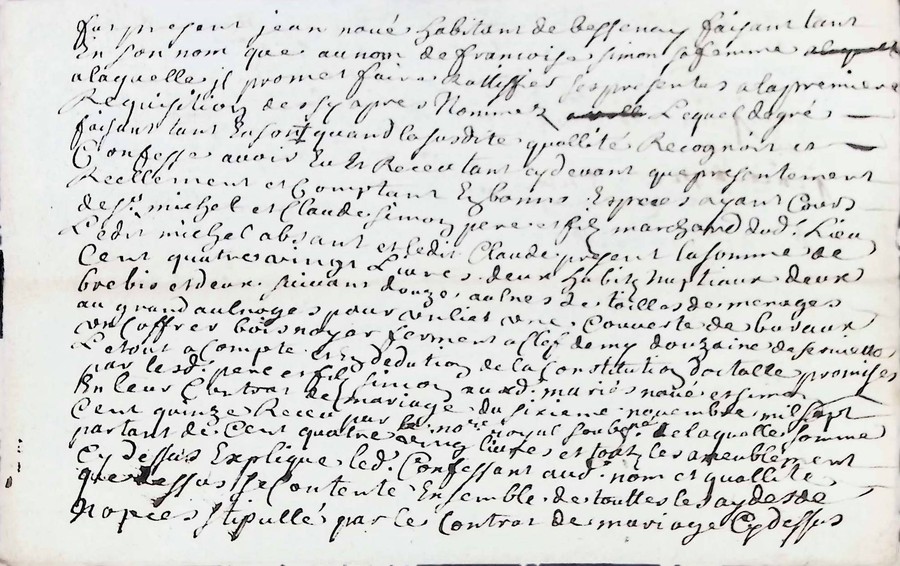 fut present jean noué habitant de bessenay faisant tant
En son nom que au nom de francoise simon sa femme
a laquelle il promet faire Rattiffies ses presentes a la premiere
Requisition des cy apres Nommez Lequel de gré
faisant tant En son quand la susdite quallité Recognoit et
Confesse avoir Eu Et Receu tant cy devant que presentement
Reellement et Comptant En bonns Especes ayant Cours
de Sr. michel et Claude simon pere et fils marchand dud. Lieu
Ledit michel absant et ledit Claude present la somme de
Cent quatre vingt Livres deux habits nuptiaux deux
brebis et deux suivans douze aulnes de toilles de menages
au grand aulnages pour un liet une Couverte de bureaux
un Coffrer bois noyer ferment a Clef demy douzaine de serviettes
Le tout a Compte et En dedution de la Constitution dottalle promises
par lesd. pere et fils simon auxd. mariés noué et simon
En leur Contrat de mariage du sixieme novembre mil sept
Cent quinze Receu par le no.re royal soub.né de laquelle somme
partant de Cent quatre vingt livres et tout les ameublement
Cy dessus Expliqué led. Confessant aud. nom et quallité
que dessus se Contente Ensemble de touttes les aydes de
Nopces stipullé par le Contrat de mariage Cy dessus